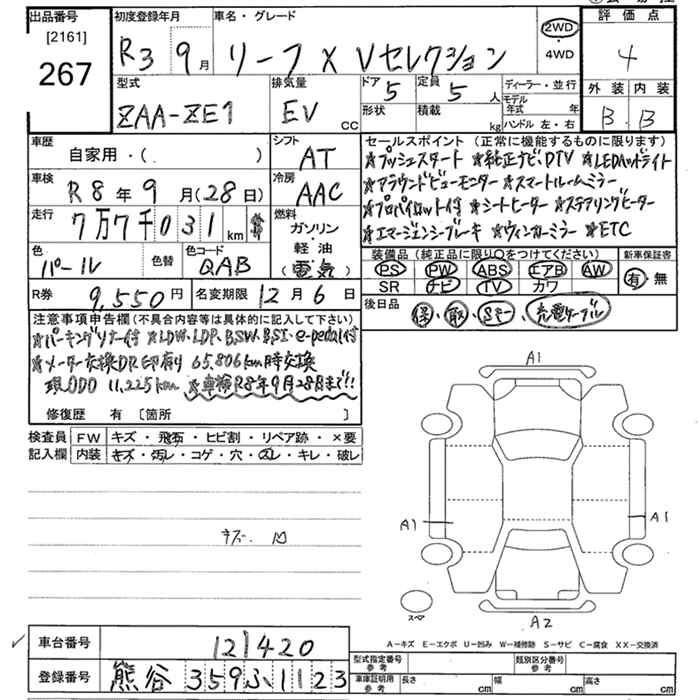 出品番号
[2161]
267
初度登録年月
R3 9月
車名・グレード
リーフ X Vセレクション
2WD
・
4WD
評価点
4
外装 内装
B B
型式
ZAA-ZE1
排気量
EV cc
ドア 5
定員 5 人
形状
積載 kg
ディーラー・並行
モデル年式 年
ハンドル 左・右
車歴
自家用・( )
シフト
AT
車検
R8年9月(28日)
冷房
AAC
走行
7万7千031km
燃料
ガソリン
軽油
(電気)
色
パール
色替
色コード
QAB
R券
9,550円
名変期限 12月6日
セールスポイント(正常に機能するものに限ります)
★プッシュスタート ★純正ナビ、DTV ★LEDヘッドライト
★アラウンドビューモニター ★スマートルームミラー
★プロパイロット付 ★シートヒーター ★ステアリングヒーター
★エマージェンシーブレーキ ★ウィンカーミラー ★ETC
装備品(純正品に限り○をつけてください)
PS PW ABS エアB AW
SR ナビ TV カワ
新車保証書
有・無
後日品
保・取・Sキー・充電ケーブル
注意事項申告欄(不具合内容等は具体的に記入して下さい)
★パーキングソナー付 ★LDW、LDP、BSW、BSI・e-pedal付
★メーター交換DR印有り 65,806km時交換
現ODO 11,225km ★車検R8年9月28日まで!!
修復歴 有 [箇所 ]
検査員 FW キズ・飛石・ヒビ割・リペア跡・×要
記入欄 内装 キズ・汚レ・コゲ・穴・スレ・キレ・破レ
キズ・凹
A1
A1
A1
A2
スペア
A-キズ E-エクボ U-凹み W-補修跡 S-サビ C-腐食 XX-交換済
車台番号 121420
登録番号 熊谷 359ふ1123
型式指定番号 参考
類別区分番号 参考
車庫証明用 参考 長さ cm 幅 cm 高さ cm